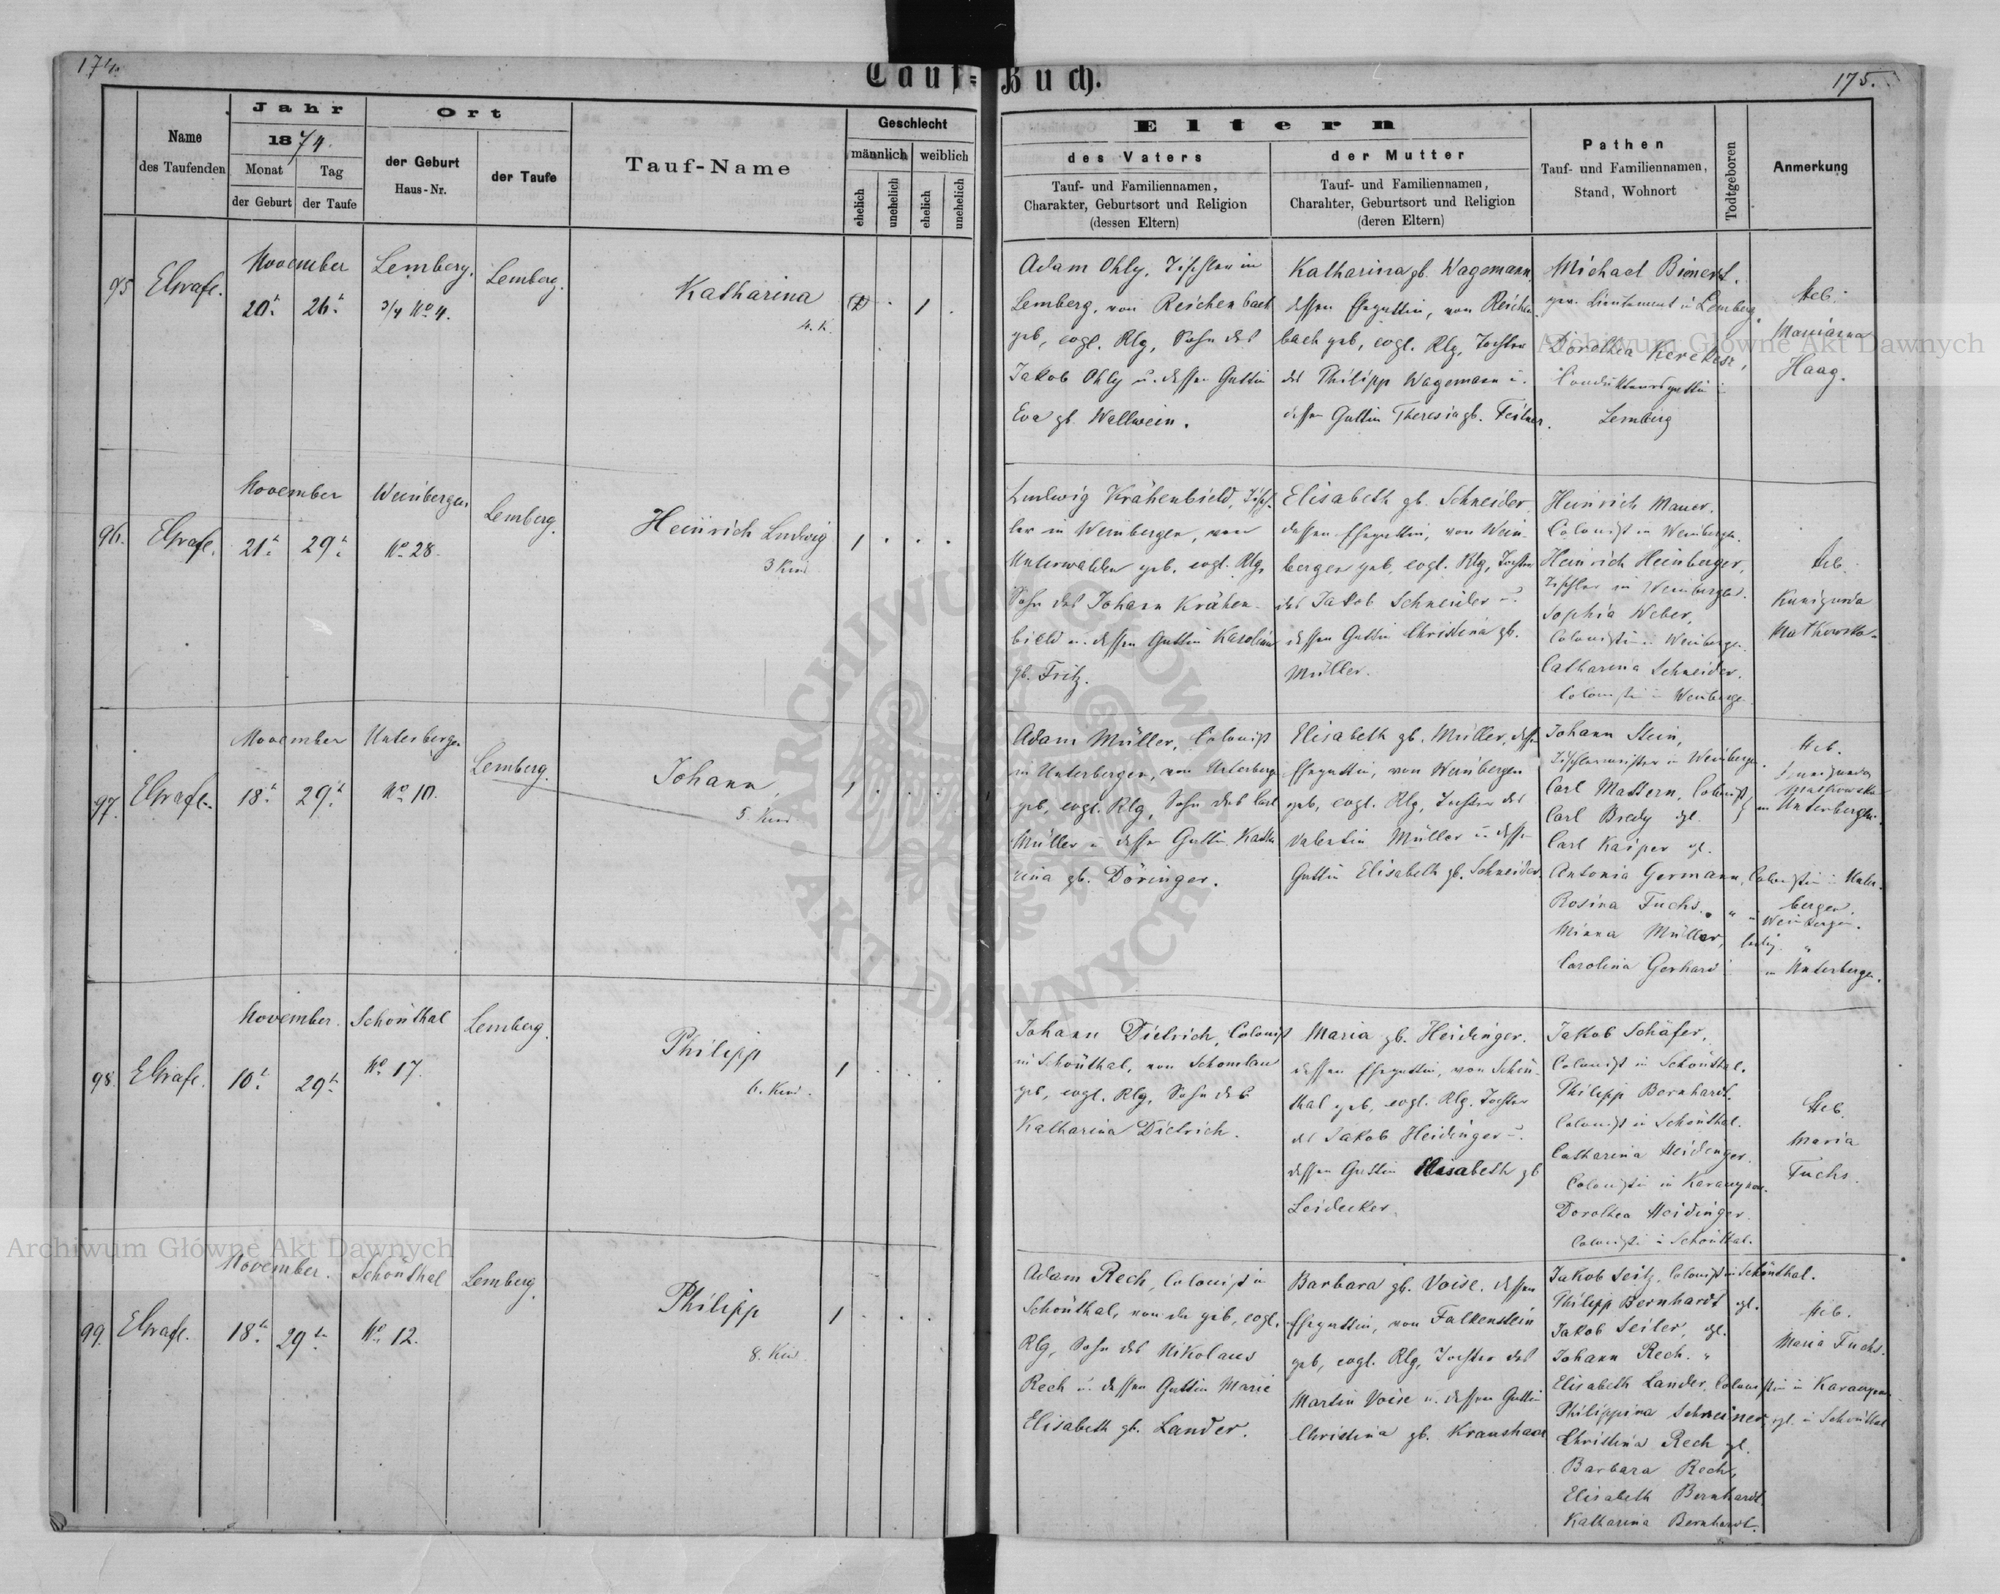 174.
Tauf-Buch.
175.
Name
des Taufenden
Jahr
1874.
Monat
Tag
der Geburt
der Taufe
Ort
der Geburt
Haus-Nr.
der Taufe
Tauf-Name
Geschlecht
männlich
weiblich
ehelich
unehelich
ehelich
unehelich
Eltern
des Vaters
Tauf- und Familiennamen,
Charakter, Geburtsort und Religion
(dessen Eltern)
der Mutter
Tauf- und Familiennamen,
Charakter, Geburtsort und Religion
(deren Eltern)
Pathen
Tauf- und Familiennamen,
Stand, Wohnort
Todtgeboren
Anmerkung
95
November
20t.
26t.
Lemberg.
3/4 No 4.
Lemberg.
Katharina
4. K.
1
Adam Ohly, Tischler in
Lemberg, von Reichenbach
geb, evgl. Rlg, Sohn des
Jakob Ohly u. dessen Gattin
Eva gb. Wallwein.
Katharina gb. Wagemann,
dessen Ehegattin, von Reichen-
bach geb, evgl. Rlg, Tochter
des Philipp Wagemann u.
dessen Gattin Theresia gb.
Michael
Lieutenant in Lemberg.
Dorothea
Condukteursgattin in
Lemberg
Heb.
Marianna
Haag.
96.
November
21t.
29t.
Weinbergen
No 28.
Lemberg.
Heinrich Ludwig
3 Kind
1
Ludwig Krähenbield, Tisch-
ler in Weinbergen, von
Unterwalden geb. evgl. Rlg,
Sohn des Johann Krähen-
bield u. dessen Gattin Karolina
gb. Fritz.
Elisabeth gb. Schneider,
dessen Ehegattin, von Wein-
bergen geb, evgl. Rlg, Tochter
des Jakob Schneider u.
dessen Gattin Christina gb.
Müller.
Heinrich Mauer.
Colonist in Weinbergen.
Heinrich Heinberger,
Tischler in Weinbergen.
Sophia Weber,
Colonistin in Weinbergen.
Catharina Schneider.
Colonistin in Weinbergen
Heb.
Kunigunda
97.
November
18t.
29t.
Unterbergen
No 10.
Lemberg.
Johann,
5. Kind
1
Adam Müller, Colonist
in Unterbergen, von Unterbergen
geb, evgl. Rlg, Sohn des Carl
Müller u. dessen Gattin Katha-
rina gb. Döringer.
Elisabeth gb. Müller, dessen
Ehegattin, von Weinbergen
geb, evgl. Rlg, Tochter des
Valentin Müller u. dessen
Gattin Elisabeth gb. Schneider.
Johann Stein,
Tischlermeister in Weinbergen.
Carl Mattern, Colonist
Carl Bredy dgl.
in Unterbergen.
Carl Kaiper dgl.
Antonia Germann, Colonistin in Unter-
bergen.
Rosina Fuchs. " " Weinbergen.
Minna Müller, ledig "
Carolina Gerhard in Unterbergen.
Heb.
Kunigunda
98.
November.
10t.
29t.
Schönthal
No 17.
Lemberg.
Philipp
6. Kind.
1
Johann Dietrich, Colonist
in Schönthal, von Schomlau
geb, evgl. Rlg, Sohn der
Katharina Dietrich.
Maria gb. Heidinger.
dessen Ehegattin, von Schön-
thal geb, evgl. Rlg. Tochter
des Jakob Heidinger u.
dessen Gattin Elisabeth gb
Leidecker.
Jakob Schäfer,
Colonist in Schönthal.
Philipp Bernhardt,
Colonist in Schönthal.
Catharina Heidinger.
Colonistin in
Dorothea Heidinger.
Colonistin in Schönthal.
Heb.
Maria
Fuchs.
99.
November.
18t.
29t.
Schönthal
No 12.
Lemberg.
Philipp
8. Kind.
1
Adam Rech, Colonist in
Schönthal, von da geb, evgl.
Rlg, Sohn des Nikolaus
Rech u. dessen Gattin Marie
Elisabeth gb. Lander.
Barbara gb. Voise, dessen
Ehegattin, von Falkenstein
geb, evgl. Rlg, Tochter des
Martin Voise u. dessen Gattin
Christina gb. Kraushaar
Jakob Seitz, Colonist in Schönthal.
Philipp Bernhardt dgl.
Jakob Seiler, dgl.
Johann Rech. "
Elisabeth Lander, Colonistin in
Philippina Schreiner, dgl. in Schönthal
Christina Rech dgl.
Barbara Rech,
Elisabeth Bernhardt
Katharina Bernhardt.
Heb.
Maria Fuchs.
Archiwum Główne Akt Dawnych
Archiwum Główne Akt Dawnych
ARCHIWUM GŁÓWNE AKT DAWNYCH